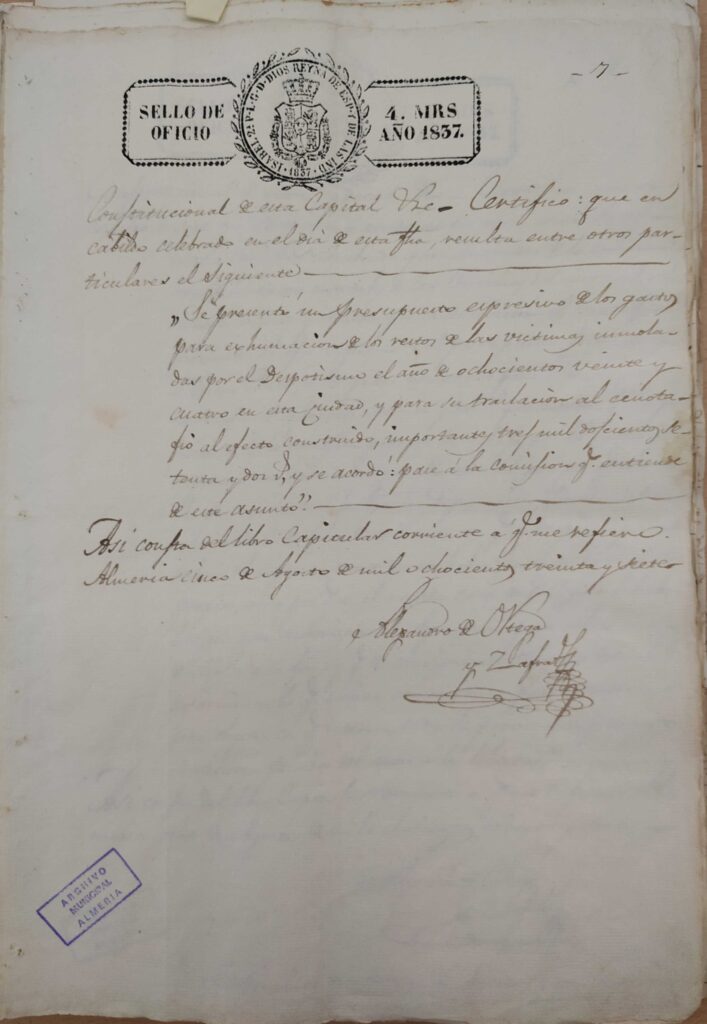 - 7 -
SELLO DE OFICIO
ISABEL 2ª P. L. G. D. DIOS REYNA DE ESP. Y DE LAS IND.
1837
4. MRS
AÑO 1837.
Constitucional de esta Capital &c - Certifico: que en
cabildo celebrado en el dia de esta fha, resulta entre otros par-
ticulares el siguiente
„Se presentó un presupuesto espresivo de los gastos
para exhumacion de los restos de las victimas inmola-
das por el Despotismo el año de ochocientos veinte y
cuatro en esta Ciudad, y para su traslacion al cenota-
fio al efecto construido, importante tres mil doscientos se-
tenta y dos y se acordó: pase á la comision q.e entiende
de este asunto".
Asi consta del libro Capitular corriente á q.e me refiero.
Almeria cinco de Agosto de mil ochocientos treinta y siete
Alexandro de Ortega
y Zafra
ARCHIVO
MUNICIPAL
ALMERIA